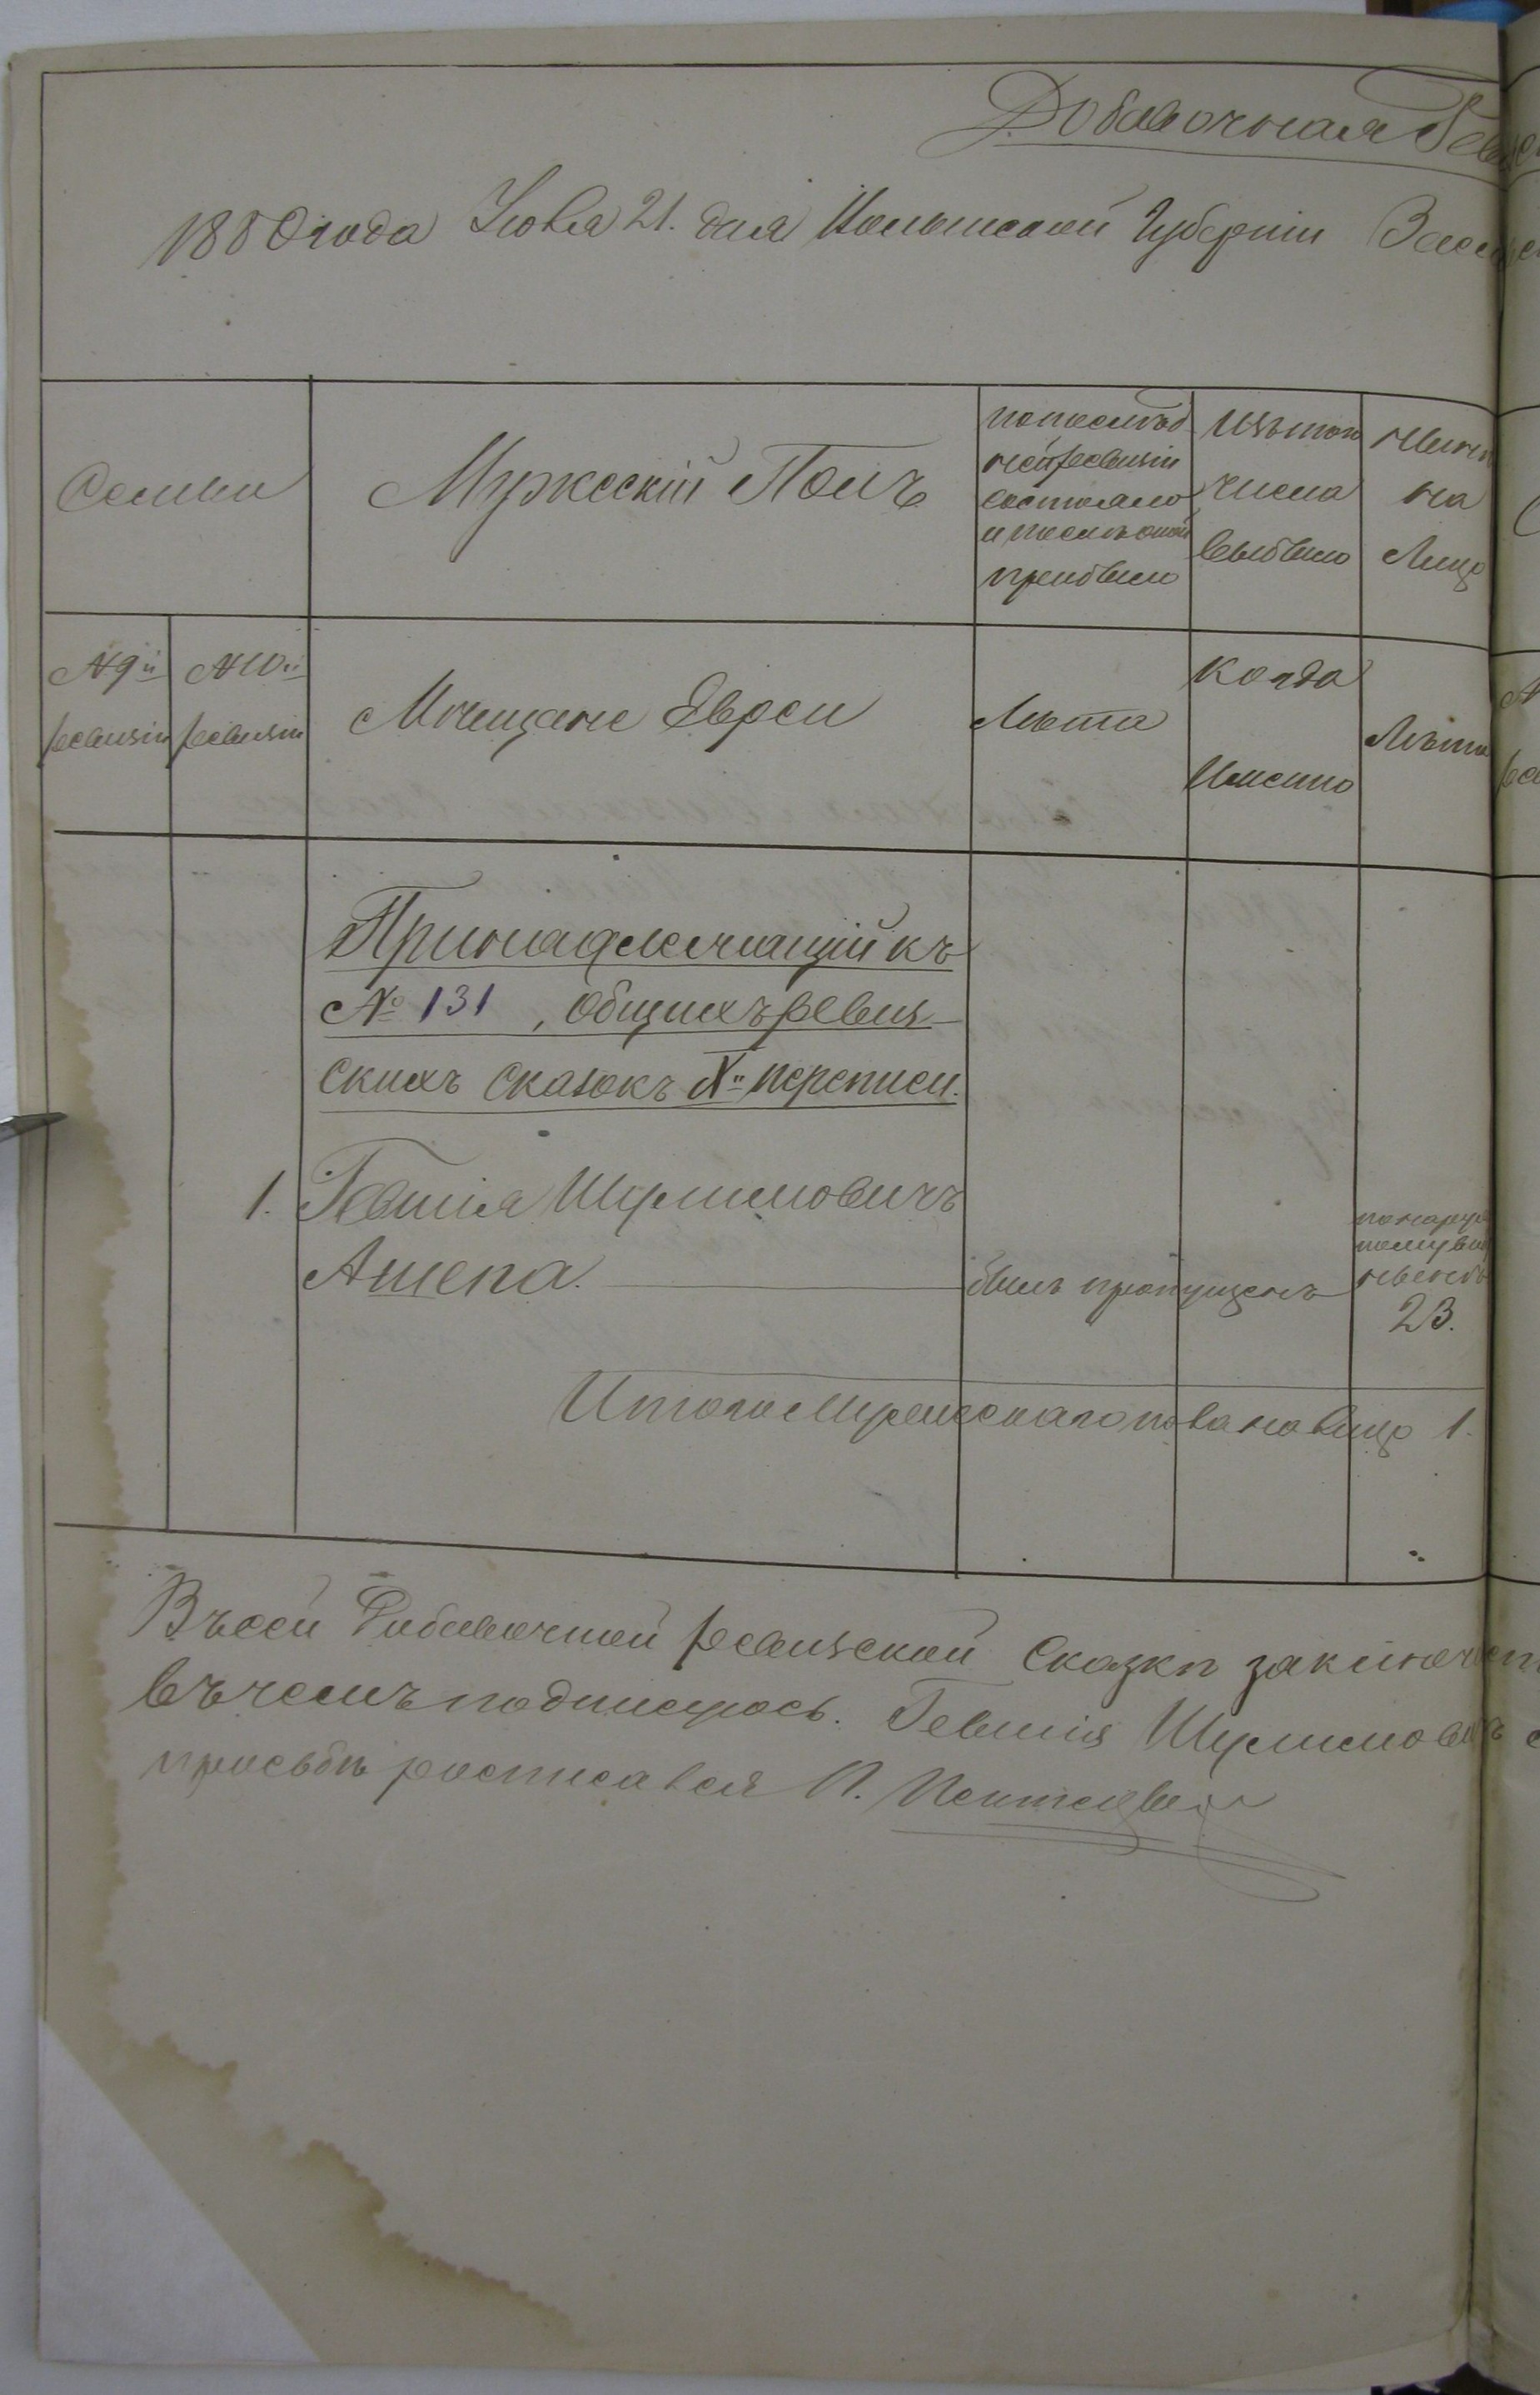 Добавочная Реви
1880 года Июля 21. дня Волынской Губерніи Засл
Семьи
Мужескій Полъ
по послѣд
ней ревизіи
состояло
и послѣ оной
прибыло
Изъ того
числа
выбыло
Нынѣ
на
Лицо
№ 9й
ревизіи
№ 10й
ревизіи
Мѣщане Евреи
Лѣта
Когда
Именно
Лѣта
Принадлежащій къ
№ 131, общихъ ревиз-
скихъ сказокъ Xй переписи.
1. Гевшія Шулимовичъ
Ашепа. был пропущенъ
по наруж
ному ви
23.
Итого Мужескаго пола на лицо 1.
Въ сей Добавочной ревизской Сказки заключает
въ чемъ подписуюсь. Гевшія Шулимовичъ
просьбѣ росписался П.